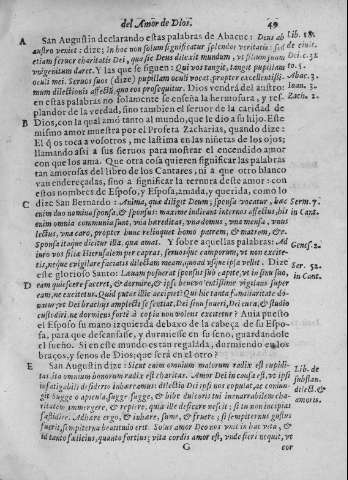 del Amor de Dios. 49
A San Augustin declarando estas palabras de Abacuc: Deus ab
austro veniet: dize: In hoc non solum significatur splendor veritatis: sed
etiam fervor charitatis Dei, quo sic Deus dilexit mundum, vt filium suum
vnigenitum daret. Y las que se siguen: Qui vos tangit, tangit pupillam
oculi mei. Servos suos (dize) pupillam oculi vocat propter excellentissi-
mum dilectionis affectũ, quo eos prosequitur. Dios vendrá del austro:
en estas palabras no solamente se enseña la hermosura, y res-
plandor de la verdad, sino tambien el fervor de la caridad de
B Dios, con la qual amó tanto al mundo, que le dio a su Hijo. Este
mismo amor muestra por el Profeta Zacharias, quando dize:
El q̃ os toca a vosotros, me lastima en las niñetas de los ojos;
llamando assi a sus siervos para mostrar el encendido amor
con que los ama. Que otra cosa quieren significar las palabras
tan amorosas del libro de los Cantares, ni a que otro blanco
van endereçadas, sino a significar la ternura deste amor: con
estos nombres de Esposo, y Esposa, amada, y querida, como lo
C dize San Bernardo: Anima, quæ diligit Deum, sponsa vocatur, hæc
enim duo nomina sponsa, & sponsus: maxime indicant internos affectus, his
enim omnia communia sunt, vna hæreditas, vna domus, vna mensa, vnus
lectus, vna caro, propter hunc relinquet homo patrem, & matrem, &c.
Sponsa itaque dicitur illa, quæ amat. Y sobre aquellas palabras: Ad
iuro vos filiæ Hierusalem per capras, servosque camporum, vt non excite-
tis, neque evigilare faciatis dilectam meam, quoad vsque ipsa velit. Dize
este glorioso Santo: Lævam posuerat sponsus sub capite, vt in sinu suo,
D eam quiescere faceret, & dormire, & ipse benevolentissime vigilans super
eam, ne excitetur. Quid putas illic accipiet? Qui hic tanta familiaritate do-
natur, vt Dei brachijs amplecti se sentiat, Dei sinu foveri, Dei cura, & studio
custodiri, ne dormiens forté à copia non volent excitetur? Avia puesto
el Esposo su mano izquierda debaxo de la cabeça de su Espo-
sa, para que descansasse, y durmiesse en su seno, guardandole
el sueño. Si en este mundo es tan regalada, durmiendo en los
braços, y senos de Dios; que será en el otro?
E San Augustin dize: Sicut enim omnium malorum radix est cupidi-
tas, ita omnium bonorum radix est charitas. Amor Dei in corda est, vt ipsi
infatigabili desiderio inhæreamus: dilectio Dei ipsi nos copulat, ac coniun-
git sugge o apicula, sugge sugge, & bibe dulcoris tui inenarrabilem cha-
ritatem immergere, & repere, quia ille deficere nescit; si tu non incipias
fastidire. Adhære ergo, & inhære, sume, & fruere; si sempiternus gustus
fuerit, sempiterna beatitudo erit. Solus amor Deo nos vnit in hac vita, &
id tanto fælicius, quanto fortius; vita cordis amor est, vnde fieri nequit, vt
G cor
Lib. 18.
de civit.
Dei. c. 32
to. 5.
Abac. 3.
Ioan. 3.
Zach. 2.
Serm. 7.
in Cant.
Genes. 2.
Ser. 52.
in Cant.
Lib. de
substan.
dilect. &
amoris.